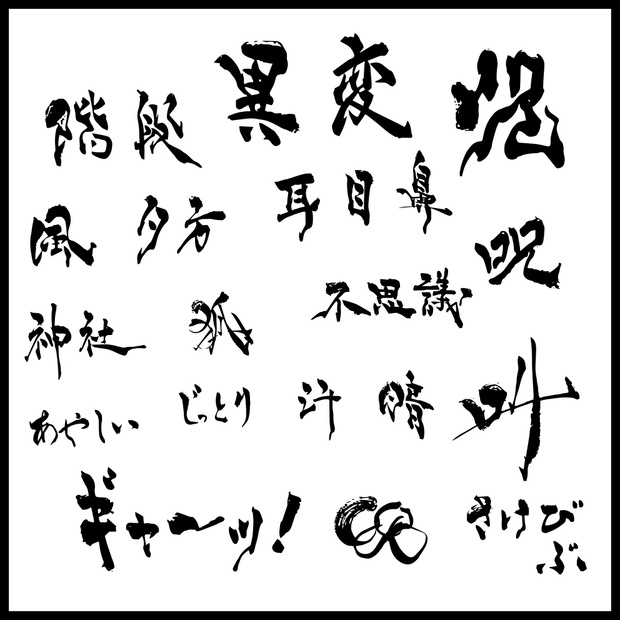 階段 異変 呪
風 夕方 耳 目 鼻 呪
神社 狐 不思議
あやしい じっとり 汗 叫
ギャーッ! さけび
ぶ